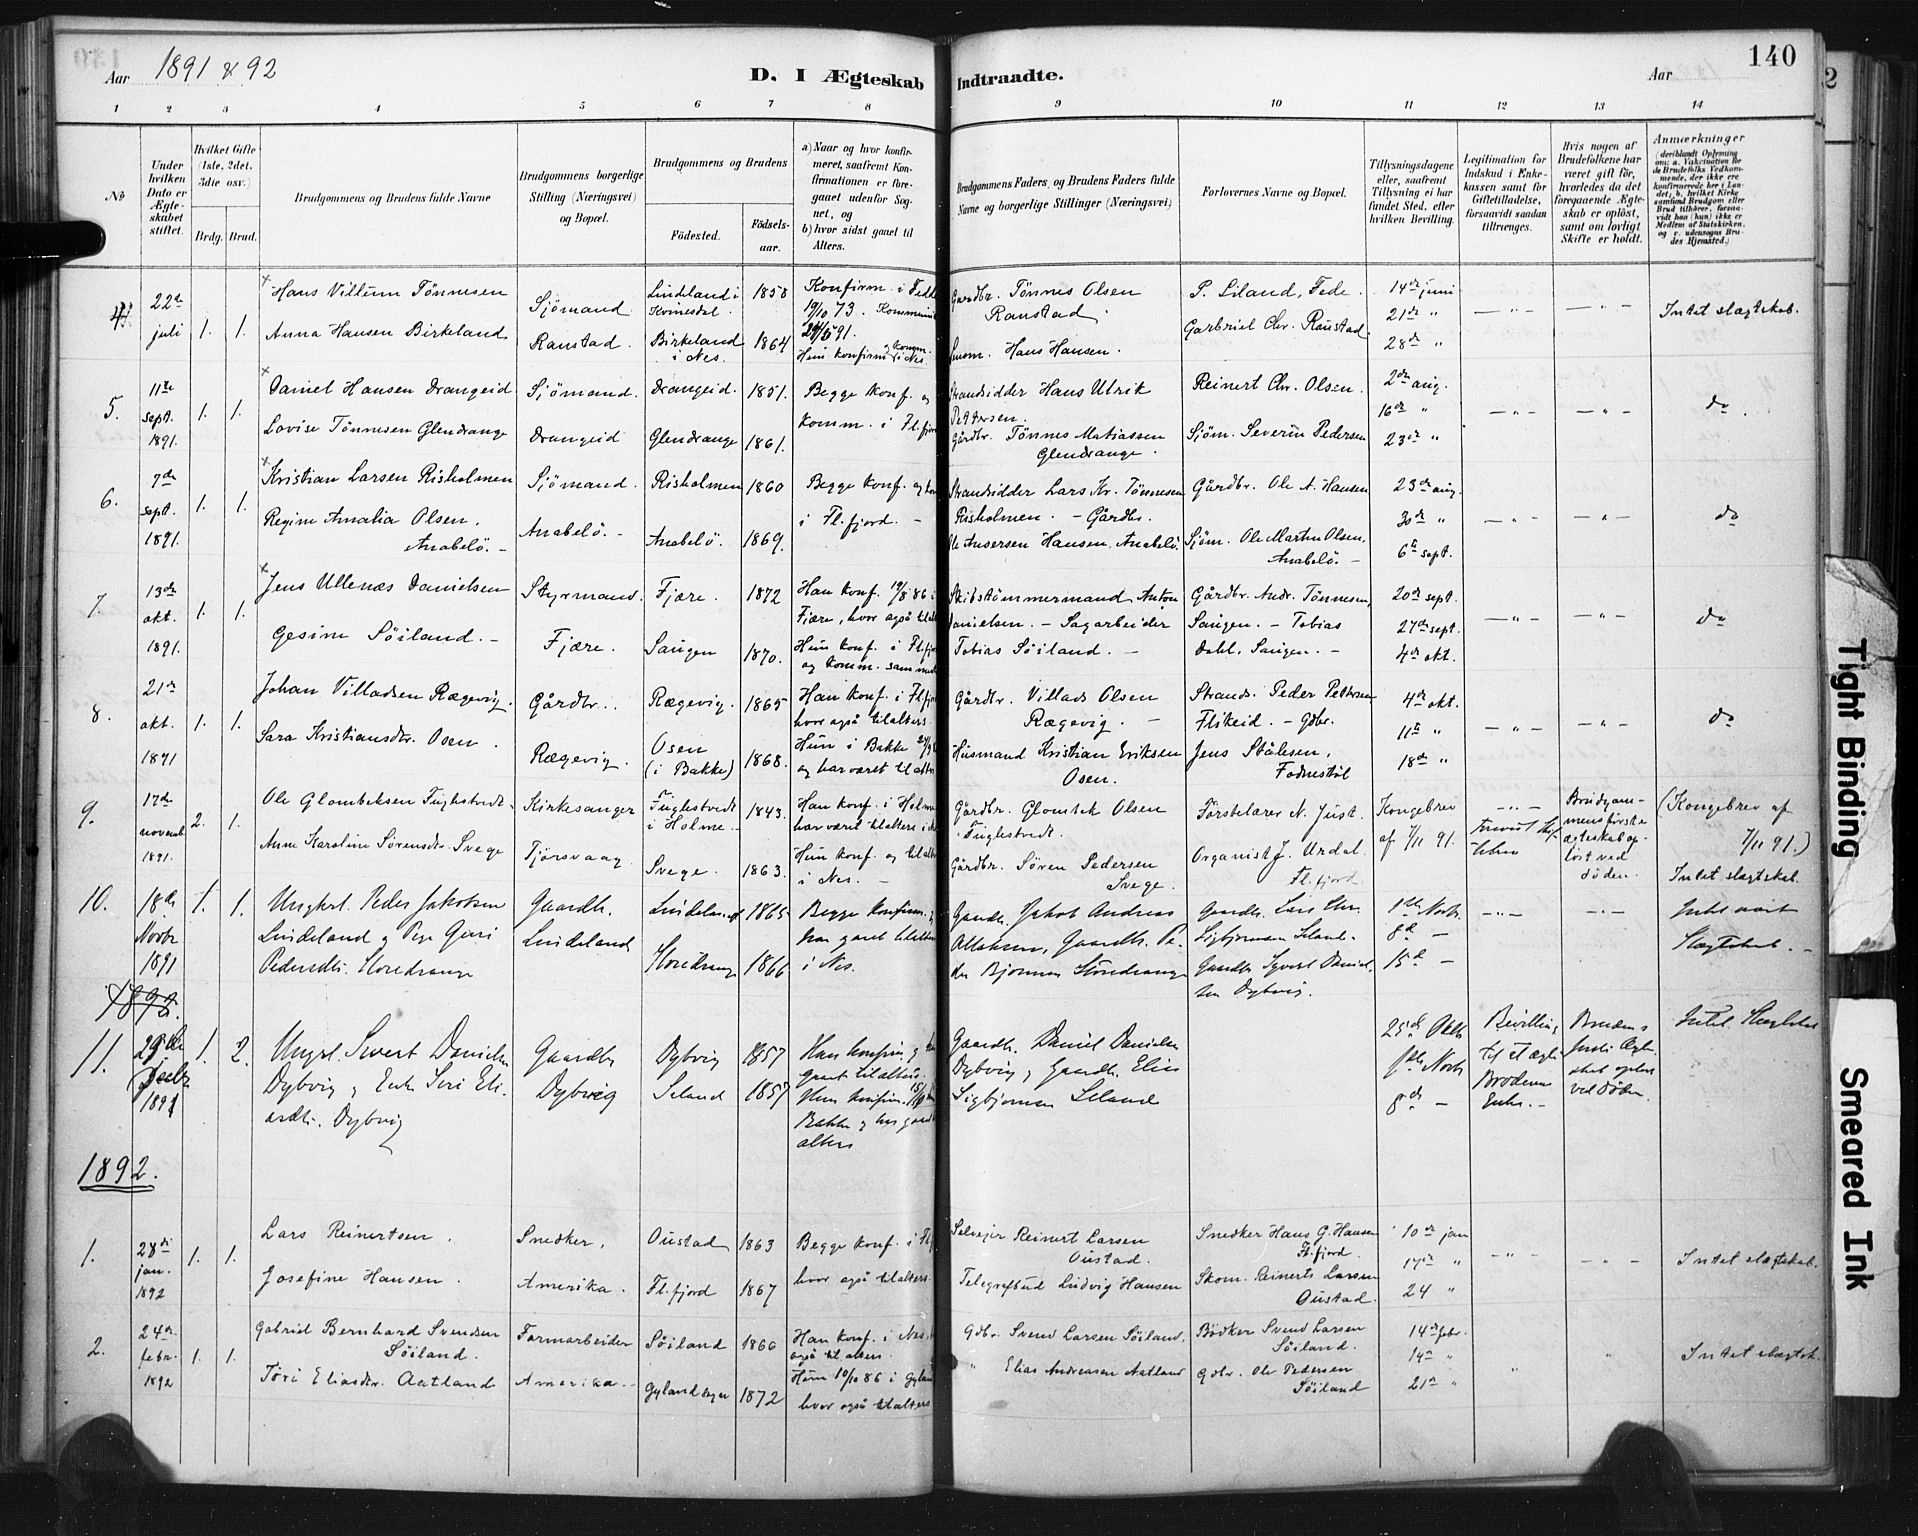 Aar 1891 & 92
D. I Ægteskab Indtraadte.
Aar
140
1 2 3 4 5 6 7 8 9 10 11 12 13 14
No
Under hvilken Dato er Ægteskabet stiftet.
Hvilket Gifte (1ste, 2det, 3die osv.)
Brdg. Brud.
Brudgommens og Brudens fulde Navne
Brudgommens borgerlige Stilling (Næringsvei) og Bopæl.
Brudgommens og Brudens
Födested.
Födselsaar.
a) Naar og hvor konfirmeret, saafremt Konfirmationen er foregaaet udenfor Sognet, og
b) hvor sidst gaaet til Alters.
Brudgommens Faders og Brudens Faders fulde Navne og borgerlige Stillinger (Næringsvei)
Forlovernes Navne og Bopæl.
Tillysningsdagene eller, saafremt Tillysning ei har fundet Sted, efter hvilken Bevilling.
Legitimation for Indskud i Enkekassen samt for Giftetilladelse, forsaavidt saadan tiltrænges.
Hvis nogen af Brudefolkene har været gift för, hvorledes da det foregaaende Ægteskab er oplöst, samt om lovligt Skifte er holdt.
Anmærkninger
(deriblandt Oplysning om: a. Vakcination for de Brudefolks Vedkommende, der ikke ere konfirmerede her i Landet; b. hvilket Kirkesamfund Brudgom eller Brud tilhörer, forsaavidt han (hun) ikke er Medlem af Statskirken, og c. udensogns Brudes Hjemsted.)
22de juli 1. 1.
Hans Villum Tönnesen
Anna Hansen Birkeland
Sjömand
Ranstad.
Lindeland i Kvinesdal
Birkeland i Nes.
1858
1864
Konfirm. i Fede
19/10 73.
Gardbr. Tönnes Olsen
Ranstad
Hans Hansen.
P. Liland, Fede.
Garbriel Chr. Ranstad
14de juni
21de "
28de "
Intet slægtskab.
5. 11te sept. 1891. 1. 1.
Daniel Hansen Drangeid.
Lovise Tönnesen Glendrange
Sjömand.
Drangeid
Drangeid.
Glendrange
1851.
1861.
Begge konf. og
komm. i Fl.fjord
Strandsidder Hans Ulrik
Pettersen.
Gårdbr. Tönnes Matiassen
Glendrange.
Reinert Chr. Olsen.
Sjöm. Severin Pedersen
2den aug.
16de "
23de "
do.
6. 7de sept. 1891. 1. 1.
Kristian Larsen Risholmen
Regine Amalia Olsen.
Anabelö. -
Sjömand.
Anabelö. -
Risholmen
Anabelö.
1860
1869.
Begge konf. og
i Fl.fjord. -
Strandsidder Lars Kr. Tönnesen
Risholmen. - Gårdbr.
Ole Andersen Hansen, Anabelö.
Gårdbr. Ole A. Hansen
Sjöm. Ole Martin Olsen,
Anabelö. -
23de aug.
30de "
6te sept.
do
7. 13de okt. 1891. 1. 1.
Jens Ullenæs Danielsen
Gesine Söiland. -
Styrmand.
Fjære.
Fjære.
Saugen
1872
1870.
Han konf. 19/8 86 i
Fjære, hvor også
Hun konf. i Fl.fjord
og komm. sammested
Skibstömmermand Anton
Danielsen. - Sagarbeider
Tobias Söiland. -
Gårdbr. Andr. Tönnesen,
Saugen. - Tobias
Dahl, Saugen. -
20de sept.
27de sept.
4de okt.
do
8. 21de okt. 1891 1. 1.
Johan Villadsen Rægevig.
Sara Kristiansdtr. Osen.
Gårdbr.
Rægevig.
Rægevig.
Osen
(i Bakke)
1865
1868.
Han konf. i Fl.fjord
hvor også til alters.
Hun i Bakke
og har været til alters
Gårdbr. Villads Olsen
Rægevig. -
Husmand Kristian Eriksen
Osen.
Strands. Peder Pettersen
Flikeid. - Gdbr.
Jens Stålesen,
Fodnestöl
4de okt.
11te "
18de "
do
9. 17de novemb. 1891. 2. 1.
Ole Glomseksen Fuglestvedt.
Anne Karoline Sörensdtr. Svege
Kirkesanger
Tjörsvaag.
Fuglestvedt
i Holme.
Svege.
1843.
1863.
Han konf. i Holme
har været til alters i
Hun konf. og til alters
i Nes. -
Gårdbr. Glomsek Olsen
Fuglestvedt.
Gårdbr. Sören Pedersen
Svege.
Förstelærer N. Just.
Organist J. Urdal.
Fl.fjord.
Kongebrev
af 7/11 91.
Brudgommens förste
ægteskab oplöst ved
döden.
(Kongebrev af
7/11 91.)
Intet slægtskab.
10. 18de Novbr 1891 1. 1.
Ungkrl. Peder Jakobsen
Lindeland og Pige Guri
Pedersdtr. Storedrange
Gaardb.
Lindeland
Lindeland
Storedrange
1865
1866
Begge konfirm.
har gaaet til alters
i Nes.
Gaardb. Jakob Andreas
Gaardb. Peder Bjornsen Storedrange
Gaardb. Lars Chr.
Sigbjornsen Seland.
Gaardb. Syvert Danielsen Dybvig.
1ste Novbr.
8de -
15de -
Slægtskab. -
1892.
11. 29de 1891 1. 2.
Ungkrl. Sivert Danielsen
Dybvig og Enke Siri Eliasdtr. Dybvig
Gaardb
Dybvig
Dybvig
Seland
1857
1857
Gaardb. Daniel Danielsen
Dybvig og Gaardb. Elias
Sigbjornsen Seland
25de Oktb
1ste Novb
8de -
Bevilling
til at ægte
Broderens
Enke. -
Brudens
ved Döden.
Intet Slægtskab
1892.
1. 28de jan. 1892 1. 1.
Lars Reinertsen.
Josefine Hansen.
Snedker.
Amerika.
Oustad
Fl.fjord
1863
1867
Begge konf. i Fl.fj
hvor også til alters.
Selveier Reinert Larsen
Oustad.
Telegrafbud Ludvig Hansen
Snedker Hans G. Hansen
Fl.fjord.
Skom. Reinerts Larsen
Oustad.
10de jan
17de "
24 "
Intet slægtskab.
2. 24de febr. 1892 1. 1.
Gabriel Bernhard Svendsen
Söiland.
Töri Eliasdtr. Aatland
Farmarbeider
Amerika. -
Söiland
Gyland sogn
1860
1872
Han konf. i Nes,
også til alters.
Hun 10/10 86 i Gyland
hvor også til alters.
Gdbr. Svend Larsen Söiland.
" Elias Andreasen Aatland
Bödker Svend Larsen
Söiland.
Gdbr. Ole Pedersen
Söiland
14de febr.
14de "
21de "
Intet slægtsk.
Tight Binding
Smeared Ink